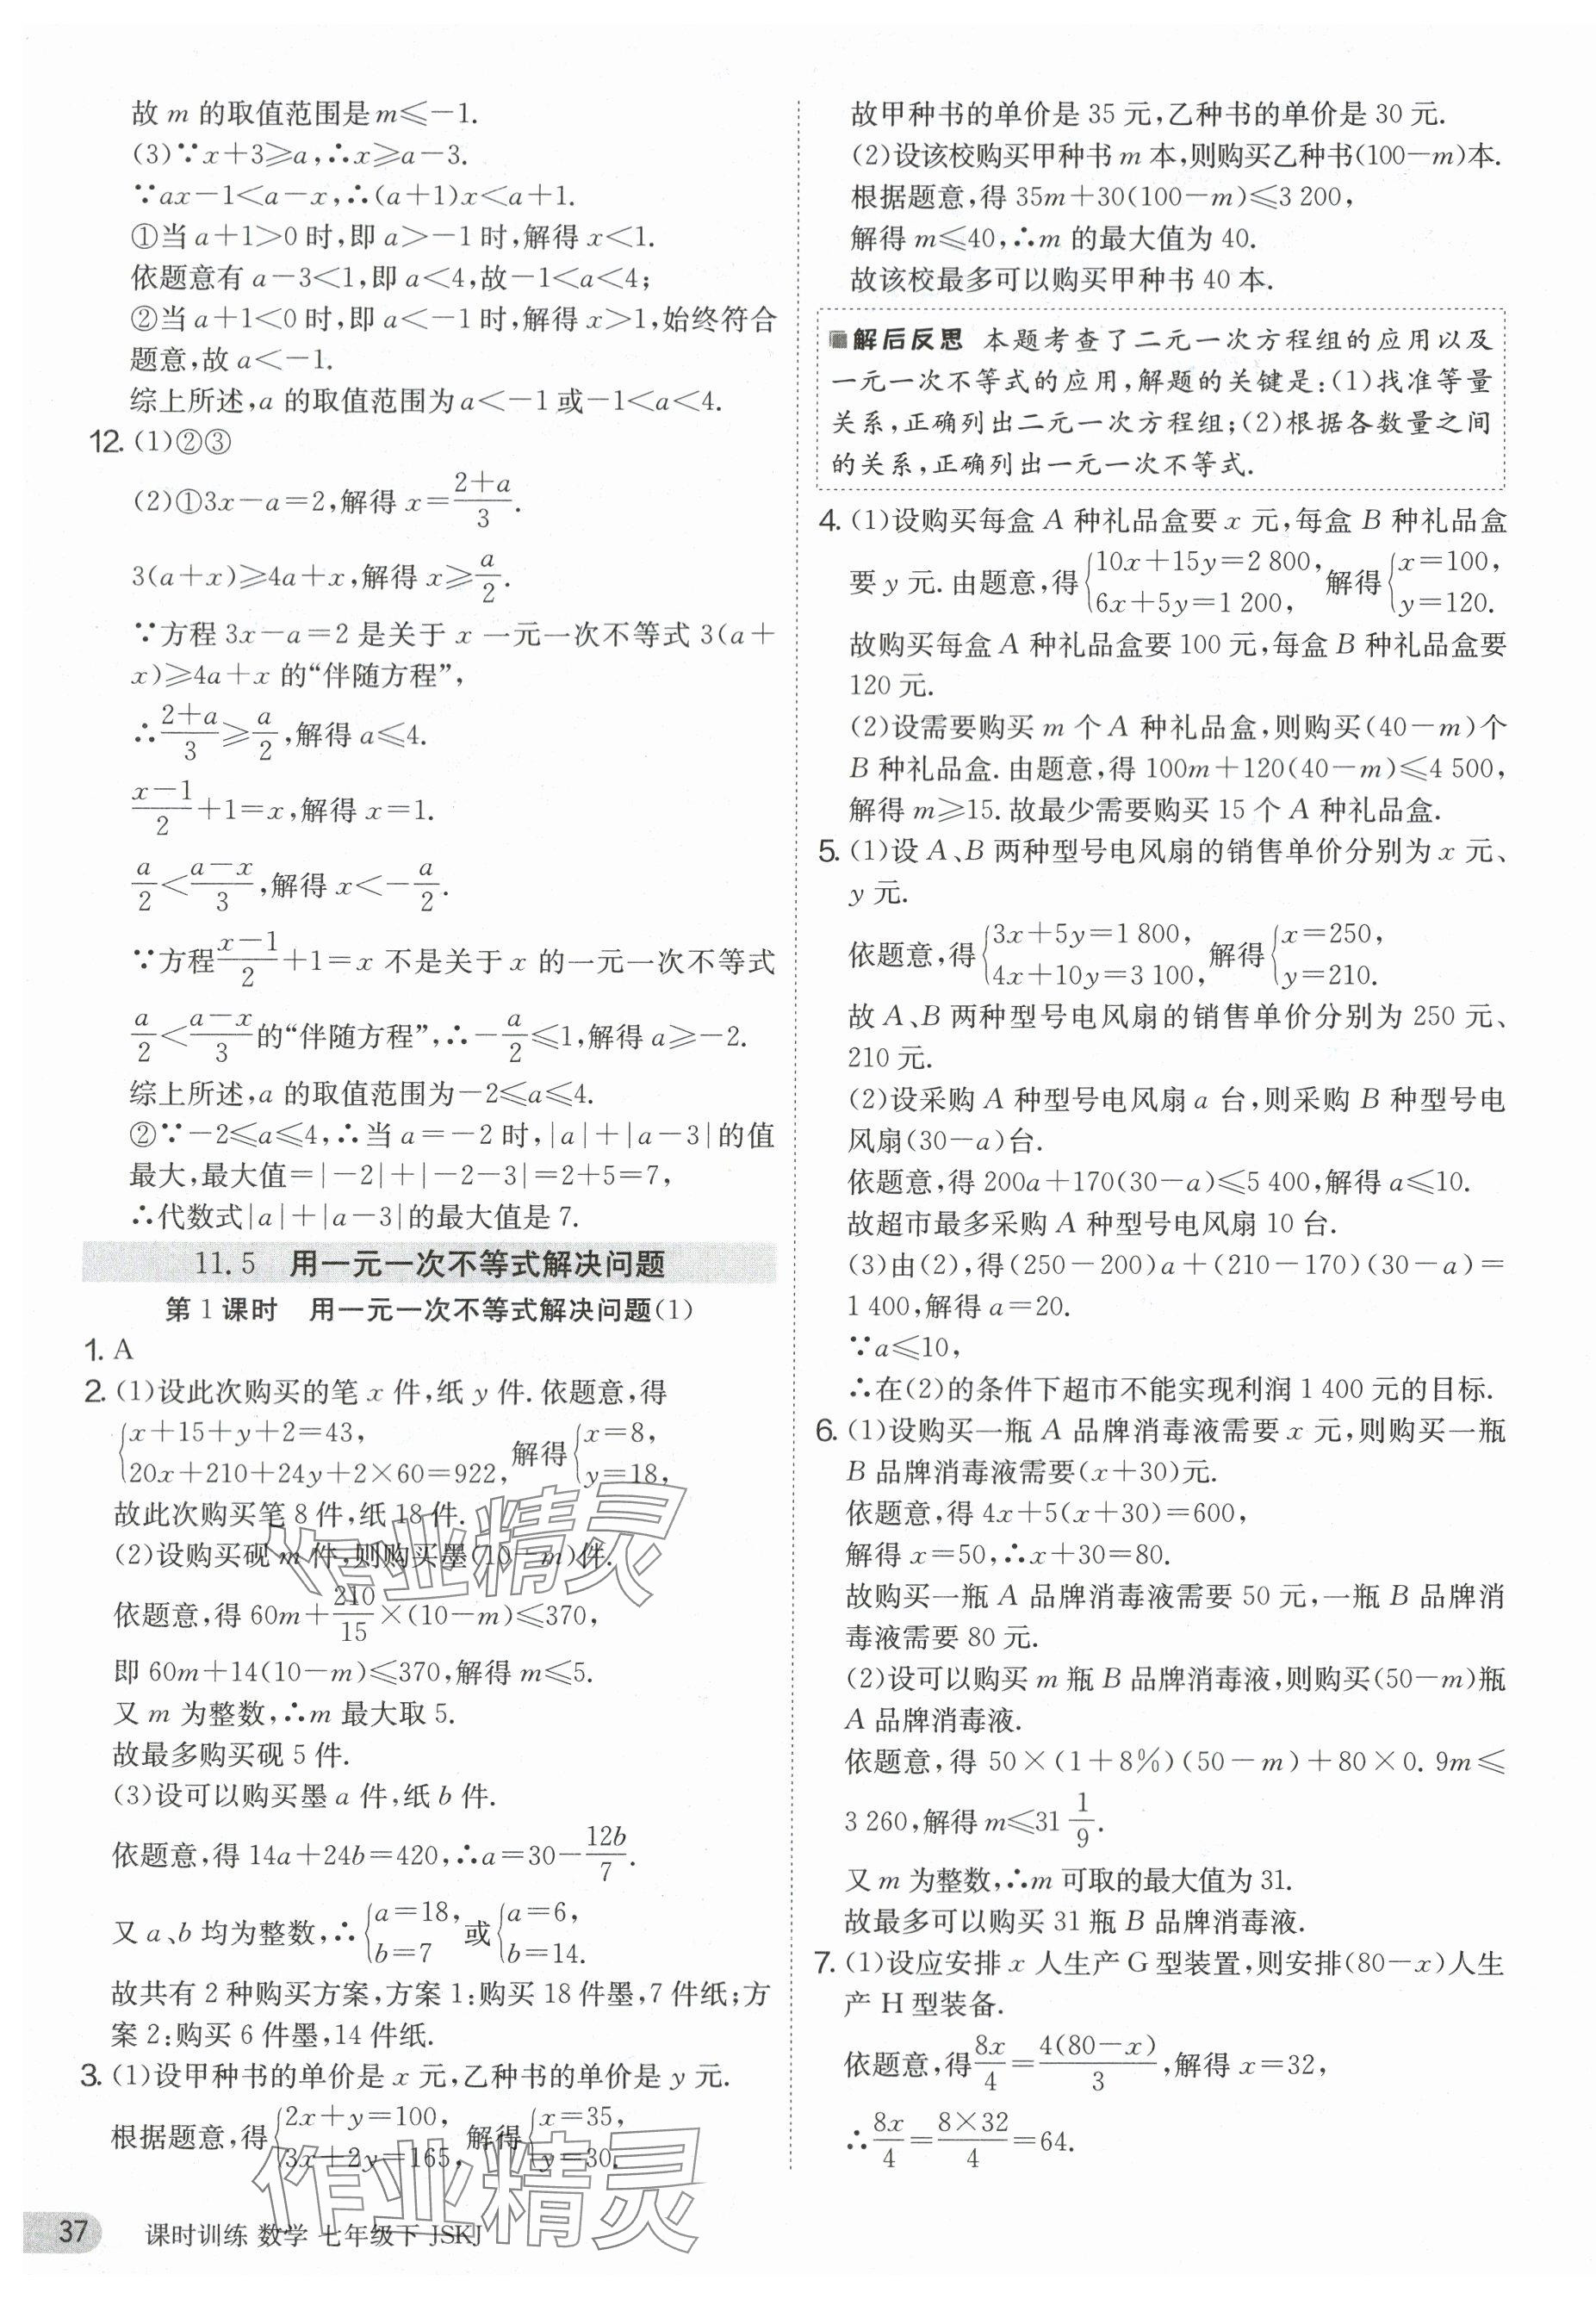 故 m 的取值范围是 m≤-1.
(3)∵x+3≥a,∴x≥a-3.
∵ax-1<a-x,∴(a+1)x<a+1.
①当 a+1>0 时,即 a>-1 时,解得 x<1.
依题意有 a-3<1,即 a<4,故-1<a<4;
②当 a+1<0 时,即 a<-1 时,解得 x>1,始终符合
题意,故 a<-1.
综上所述,a 的取值范围为 a<-1 或-1<a<4.
12. (1)②③
(2)①3x-a=2,解得 x=\frac{2+a}{3}.
3(a+x)≥4a+x,解得 x≥\frac{a}{2}.
∵方程 3x-a=2 是关于 x 一元一次不等式 3(a+
x)≥4a+x 的“伴随方程”,
∴\frac{2+a}{3}≥\frac{a}{2},解得 a≤4.
\frac{x-1}{2}+1=x,解得 x=1.
\frac{a}{2}<\frac{a-x}{3},解得 x<-\frac{a}{2}.
∵方程\frac{x-1}{2}+1=x 不是关于 x 的一元一次不等式
\frac{a}{2}<\frac{a-x}{3}的“伴随方程”,∴-\frac{a}{2}≤1,解得 a≥-2.
综上所述,a 的取值范围为-2≤a≤4.
②∵-2≤a≤4,∴当 a=-2 时,|a|+|a-3|的值
最大,最大值=|-2|+|-2-3|=2+5=7,
∴代数式|a|+|a-3|的最大值是 7.
11.5 用一元一次不等式解决问题
第 1 课时 用一元一次不等式解决问题(1)
1. A
2. (1)设此次购买的笔 x 件,纸 y 件. 依题意,得
{x+15+y+2=43, 20x+210+24y+2×60=922, 解得{x=8, y=18,
故此次购买笔 8 件,纸 18 件.
(2)设购买砚 m 件,则购买墨(10-m)件.
依题意,得 60m+\frac{210}{15}×(10-m)≤370,
即 60m+14(10-m)≤370,解得 m≤5.
又 m 为整数,∴m 最大取 5.
故最多购买砚 5 件.
(3)设可以购买墨 a 件,纸 b 件.
依题意,得 14a+24b=420,∴a=30-\frac{12b}{7}.
又 a、b 均为整数,∴{a=18, b=7 或{a=6, b=14.
故共有 2 种购买方案,方案 1:购买 18 件墨,7 件纸;方
案 2:购买 6 件墨,14 件纸.
3. (1)设甲种书的单价是 x 元,乙种书的单价是 y 元.
根据题意,得{2x+y=100, 3x+2y=165, 解得{x=35, y=30.
故甲种书的单价是 35 元,乙种书的单价是 30 元.
(2)设该校购买甲种书 m 本,则购买乙种书(100-m)本.
根据题意,得 35m+30(100-m)≤3 200,
解得 m≤40,∴m 的最大值为 40.
故该校最多可以购买甲种书 40 本.
解后反思 本题考查了二元一次方程组的应用以及
一元一次不等式的应用,解题的关键是:(1)找准等量
关系,正确列出二元一次方程组;(2)根据各数量之间
的关系,正确列出一元一次不等式.
4. (1)设购买每盒 A 种礼品盒要 x 元,每盒 B 种礼品盒
要 y 元. 由题意,得{10x+15y=2 800, 6x+5y=1 200, 解得{x=100, y=120.
故购买每盒 A 种礼品盒要 100 元,每盒 B 种礼品盒要
120 元.
(2)设需要购买 m 个 A 种礼品盒,则购买(40-m)个
B 种礼品盒. 由题意,得 100m+120(40-m)≤4 500,
解得 m≥15. 故最少需要购买 15 个 A 种礼品盒.
5. (1)设 A、B 两种型号电风扇的销售单价分别为 x 元、
y 元.
依题意,得{3x+5y=1 800, 4x+10y=3 100, 解得{x=250, y=210.
故 A、B 两种型号电风扇的销售单价分别为 250 元、
210 元.
(2)设采购 A 种型号电风扇 a 台,则采购 B 种型号电
风扇(30-a)台.
依题意,得 200a+170(30-a)≤5 400,解得 a≤10.
故超市最多采购 A 种型号电风扇 10 台.
(3)由(2),得(250-200)a+(210-170)(30-a)=
1 400,解得 a=20.
∵a≤10,
∴在(2)的条件下超市不能实现利润 1 400 元的目标.
6. (1)设购买一瓶 A 品牌消毒液需要 x 元,则购买一瓶
B 品牌消毒液需要(x+30)元.
依题意,得 4x+5(x+30)=600,
解得 x=50,∴x+30=80.
故购买一瓶 A 品牌消毒液需要 50 元,一瓶 B 品牌消
毒液需要 80 元.
(2)设可以购买 m 瓶 B 品牌消毒液,则购买(50-m)瓶
A 品牌消毒液.
依题意,得 50×(1+8%)(50-m)+80×0.9m≤
3 260,解得 m≤31\frac{1}{9}.
又 m 为整数,∴m 可取的最大值为 31.
故最多可以购买 31 瓶 B 品牌消毒液.
7. (1)设应安排 x 人生产 G 型装置,则安排(80-x)人生
产 H 型装备.
依题意,得\frac{8x}{4}=\frac{4(80-x)}{3},解得 x=32,
∴\frac{8x}{4}=\frac{8×32}{4}=64.
作业精灵
作业精灵
37 课时训练 数学 七年级下 JSKJ